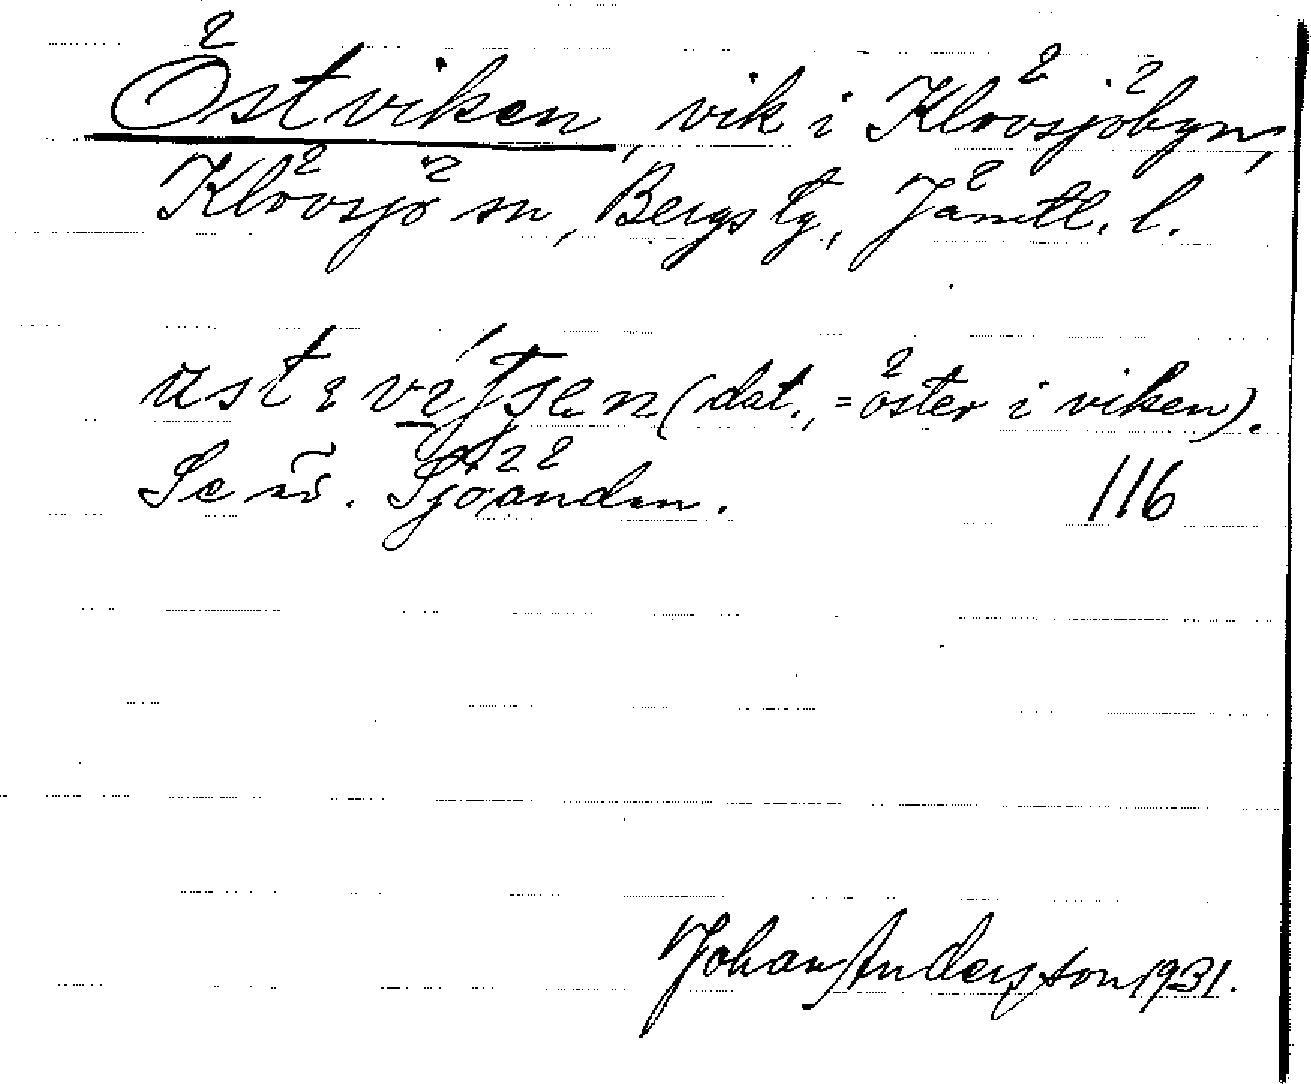 Östviken, vik i Klövsjöbyn,
Klövsjö sn, Bergs tg, Jämtl. l.
(dat., = öster i viken).
Se uo. Sjöändan. 116
Johan Andersson 1931.